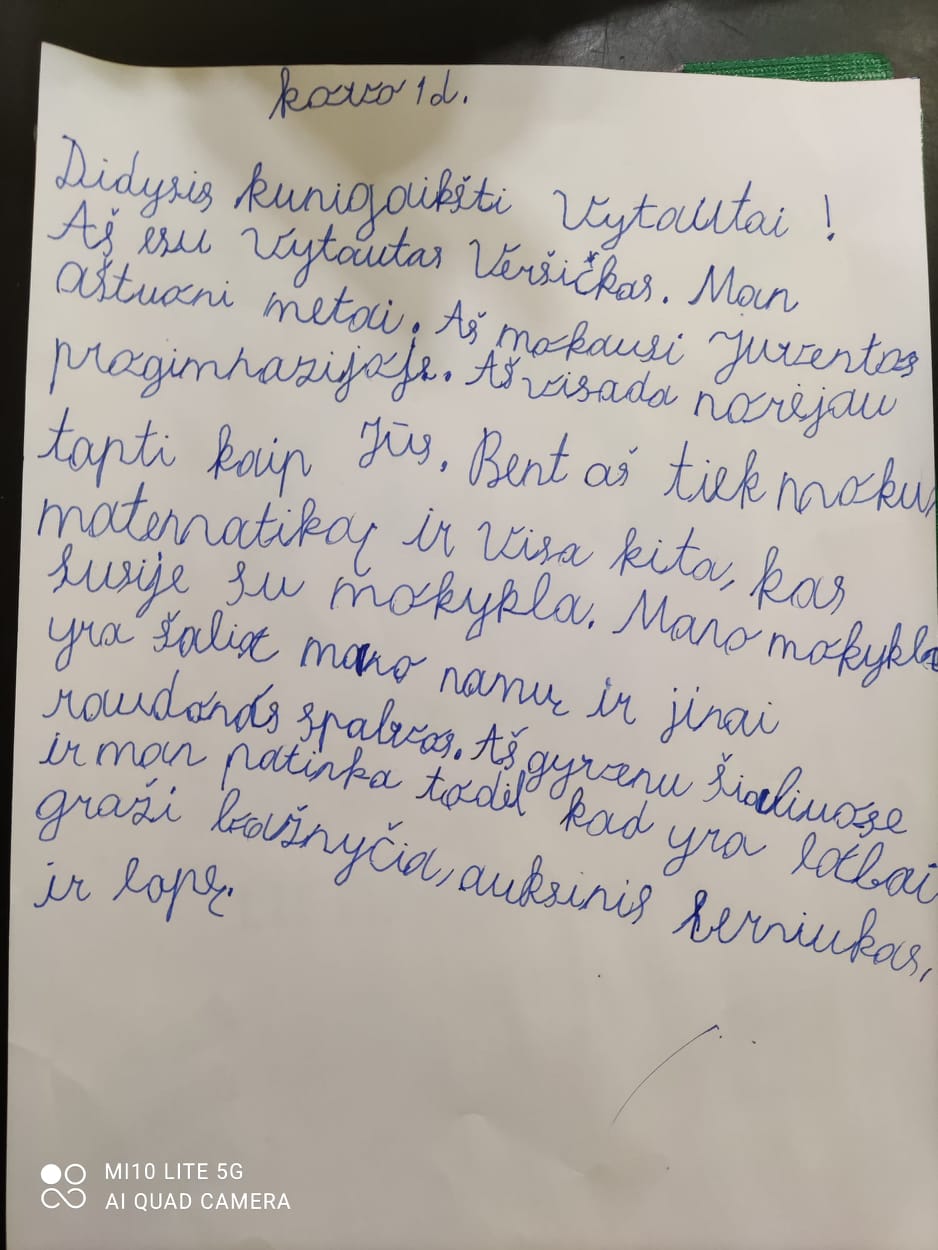 kovo 1d.
Didysis kunigaikšti Vytautai !
Aš esu Vytautas Veršičkas. Man
aštuoni metai. Aš mokausi Juventos
progimnazijoje. Aš visada norėjau
tapti kaip Jūs. Bent aš tiek moku,
matematiką ir visa kita, kas
susije su mokykla. Mano mokykla
yra šalia mano namų ir jinai
raudonos spalvos. Aš gyvenu Šiauliuose
ir man patinka todėl kad yra labai
graži bažnyčia, auksinis berniukas,
ir lapę.
MI10 LITE 5G
AI QUAD CAMERA